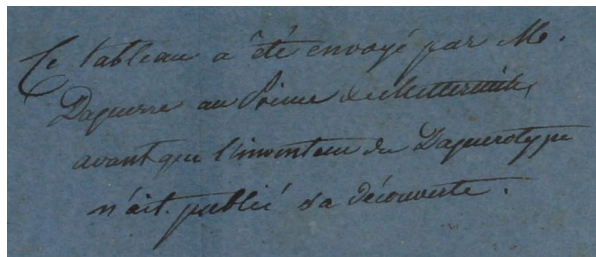 Ce tableau a été envoyé par M.
Daguerre au Prince de Metternich,
avant que l'inventeur du Daguerotype
n'ait publié sa découverte.